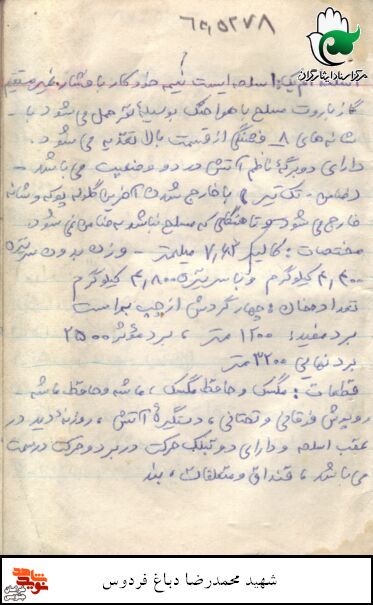 ۶۲,۵۲۷۸
مرکز اسناد ایثارگران
اسلحه ام یک: اسلحه ایست نیمه خودکار با فشار غیر مستقیم
گاز باروت مسلح با هوا خنک بوسیله نفر حمل می شود با
شانه های ۸ فشنگی از قسمت بالا تغذیه می شود.
دارای دو برگه ناظم آتش در دو وضعیت می باشد
ضامن - تک تیر با خارج شدن آخرین گلوله پوکه و شانه
خارج می شود و تا هنگامی که مسلح نباشد به ضامن نمی شود
مختصات: کالیبر ۷,۶۲ میلیمتر - وزن بدون سرنیزه
۴,۳۰۰ کیلوگرم و با سرنیزه ۴,۸۰۰ کیلوگرم
تعداد خان: چهار گردش از چپ براست
برد مفید: ۱۲۰۰ متر، برد مؤثر ۲۵۰۰
برد نهایی ۳۲۰۰ متر
قطعات: مگسک و حافظ مگسک، ماشه و حافظ ماشه
روپوش فوقانی و تحتانی، دستگیره آتش، روزنه دید در
عقب اسلحه و دارای دو تیلیک حرکت در برد و حرکت در سمت
می باشد، قنداق و متعلقات، بند
شهید محمدرضا دباغ فردوس
نوید شاهد
خراسان جنوبی